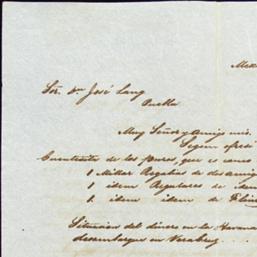 Mex
Sor. Dn José Lang
Puebla
Muy Señor y Amigo mio.
Segun ofreci
Cuentesita de los puros, que es como
1 Millar Regalias de dos amigos
1 idem Regulares de idem
1 idem idem de
Situacion del dinero en la Havana
desembarque en Veracruz